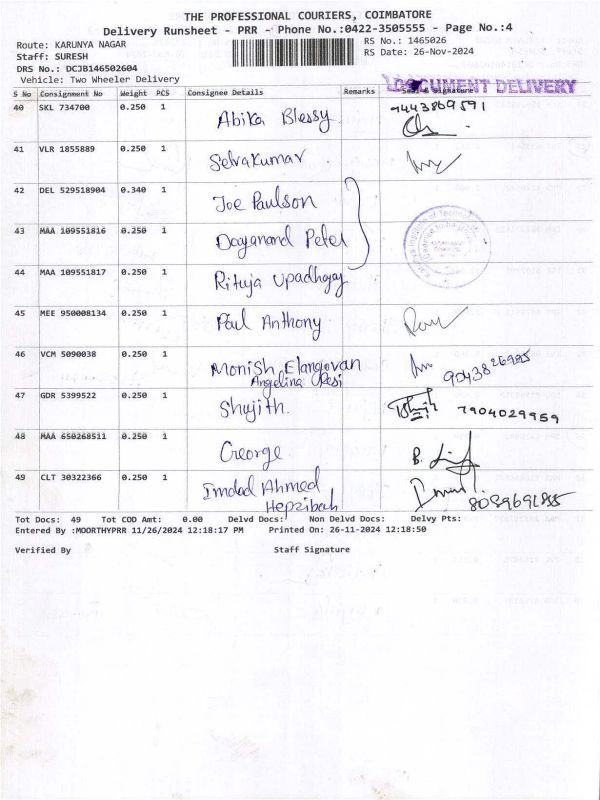 THE PROFESSIONAL COURIERS, COIMBATORE
Delivery Runsheet - PRR - Phone No.:0422-3505555 - Page No.:4
Route: KARUNYA NAGAR RS No.: 1465026
Staff: SURESH RS Date: 26-Nov-2024
DRS No.: DCJB146502604
Vehicle: Two Wheeler Delivery
DOCUMENT DELIVERY
S No Consignment No Weight PCS Consignee Details Remarks Signature
40 SKL 734700 0.250 1 Abika Blessy 9443869591
41 VLR 1855889 0.250 1 Selvakumar
42 DEL 529518904 0.340 1 Joe Paulson
43 MAA 109551816 0.250 1 Dayanand Peter
44 MAA 109551817 0.250 1 Rituja Upadhyay
45 MEE 950008134 0.250 1 Paul Anthony
46 VCM 5090038 0.250 1 Monish Elangovan
Angelina 9043826995
47 GDR 5399522 0.250 1 Shujith. 7904029959
48 MAA 650268511 0.250 1 George
49 CLT 30322366 0.250 1 Imdad Ahmed
Hepzibah
Tot Docs: 49 Tot COD Amt: 0.00 Delvd Docs: Non Delvd Docs: Delvy Pts:
Entered By :MOORTHYPRR 11/26/2024 12:18:17 PM Printed On: 26-11-2024 12:18:50
Verified By Staff Signature